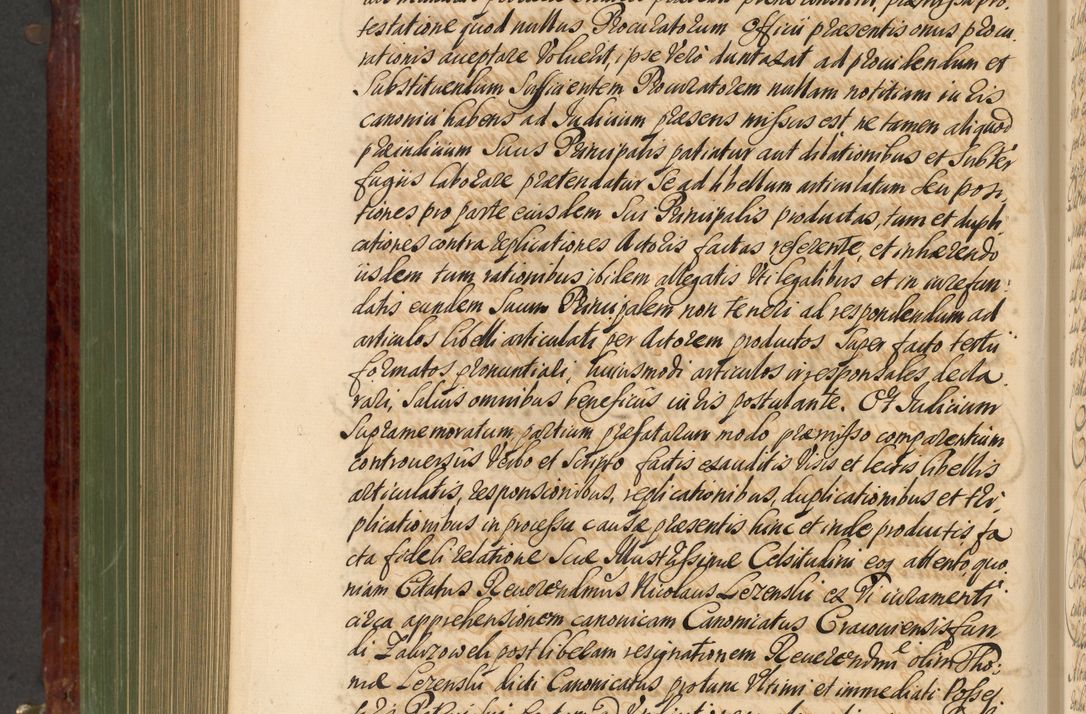 testatione quod nullus Procuratorum Officii præsentis onus procu,
rationis acceptare Voluerit, ipse Verò duntaxat ad providendum et
Substituendum Sufficientem Procuratorem nullam notitiam iuris
canonici habens ad Iudicium præsens missus est ne tamen aliquod
præiudicium Suus Principalis patiatur aut dilationibus et Subter
fugiis laborare prætendatur Se ad libellum articulatum Seu posi,
tiones pro parte eiusdem Sui Principalis productas, tum et dupli
cationes contra replicationes Actoris factas referente, et inhærendo
iisdem tum rationibus ibidem allegatis Vti legalibus et in iure fun:
datis eundem Suum Principalem non teneri ad respondendum ad
articulos libelli articulati per Actorem productos Super facto tertii
formatos pronuntiari, huiusmodi articulos irresponsales decla,
rari, Salvis omnibus beneficiis iuris postulante. Et Iudicium
Supramemoratum partium præfatarum modo præmisso comparentium
controversiis Verbo et Scripto factis exauditis Visis et lectis libellis
articulatis, responsionibus, replicationibus, duplicationibus et tri,
plicationibus in processu causæ præsentis hinc et inde productis fa
cta fideli relatione Suæ Illustrissimæ Celsitudini eoq attento, quo,
niam Citatus Reverendmus Nicolaus Lezenski ex Vi iuramenti
circa apprehensionem canonicam Canonicatus Cracoviensis fun
di post liberam resignationem Reverendmi olim Tho:
mæ Lezenski dicti Canonicatus protunc Vltimi et immediati Posses